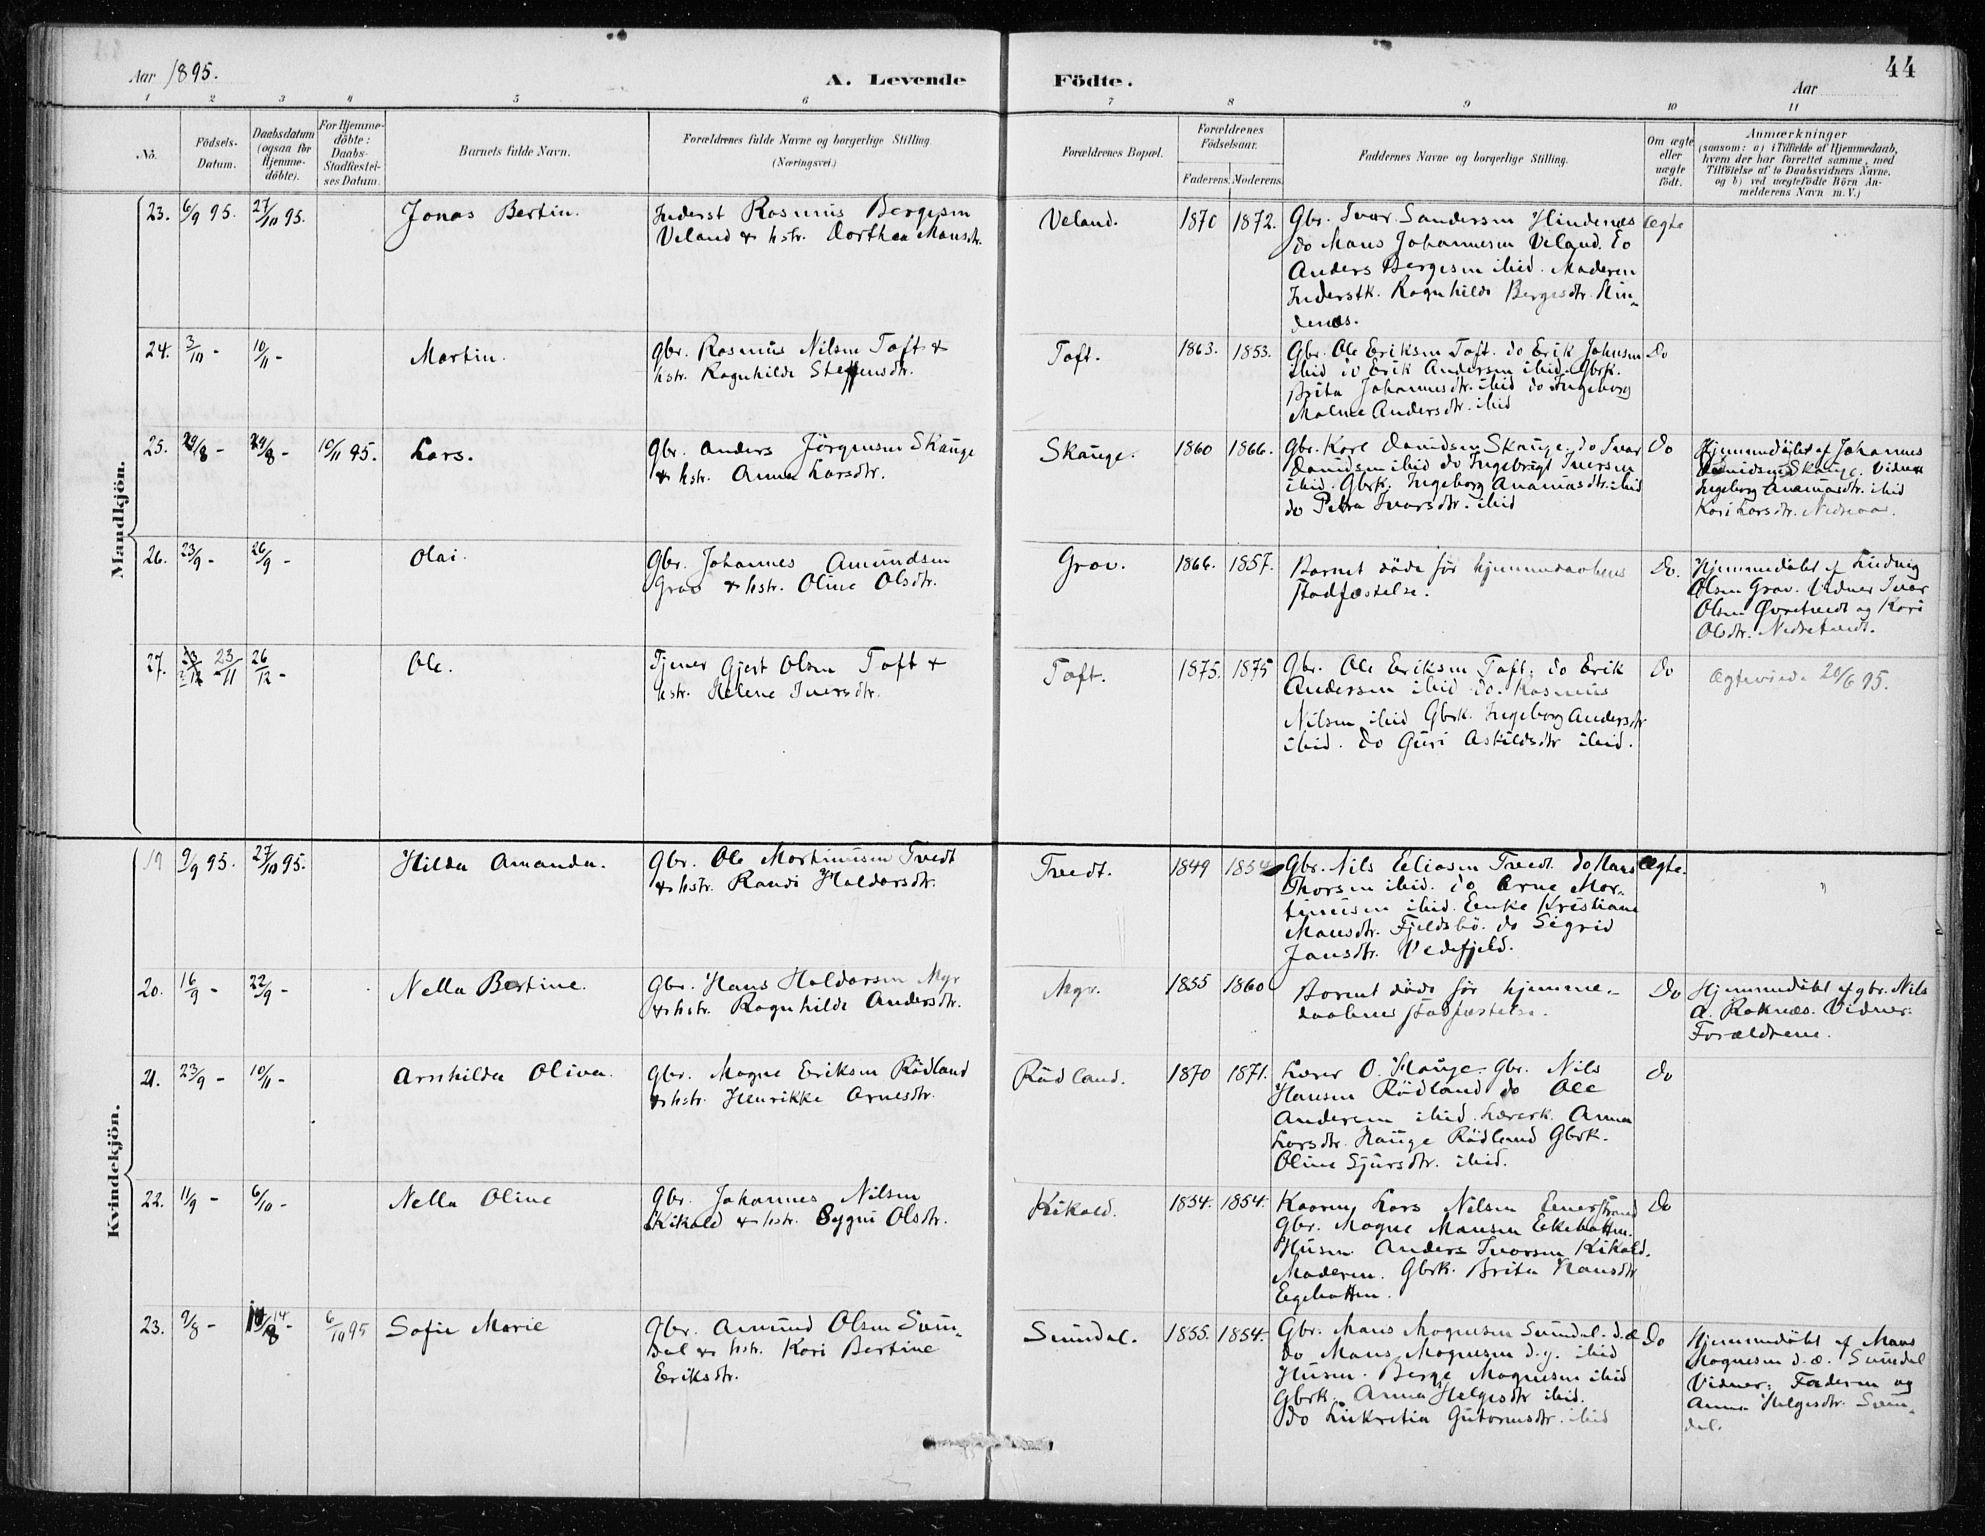 44
Aar 1895.
A. Levende Födte.
Aar
1 2 3 4 5 6 7 8 9 10 11
No.
Födsels-Datum.
Daabsdatum (ogsaa for Hjemme-döbte).
For Hjemme-döbte: Daabs-Stadfæstel-ses Datum.
Barnets fulde Navn.
Forældrenes fulde Navne og borgerlige Stilling
(Næringsvei.)
Forældrenes Bopæl.
Forældrenes Födselsaar.
Faderens. Moderens.
Faddernes Navne og borgerlige Stilling.
Om ægte eller uægte födt.
Anmærkninger
(saasom: a) i Tilfælde af Hjemmedaab,
hvem der har forrettet samme, med
Tilföielse af to Daabsvidners Navne.
og b) ved uægtefödte Börn An-
melderens Navn m. V.)
Mandkjön.
23. 6/9 95. 27/10 95. Jonas Bertin. Inderst Rasmus Bergesen
Veland & hstr. Dorthea Mansdtr. Veland. 1870 1872. Gbr. Ivar Sandersen Hindenes Ægte
do Mans Johannesen Veland. do
Anders Bergesen ibid. Moderen
Inderstk. Ragnhilde Bergesdtr. Hin-
denes.
24. 3/10 - 10/11 - Martin. Gbr. Rasmus Nilsen Toft &
hstr. Ragnhilde Steffensdtr. Toft. 1863. 1853. Gbr. Ole Eriksen Toft. do Erik Johnsen Do
ibid do Erik Andersen ibid. Gbrk.
Brita Johannesdtr. ibid do Ingeborg
Malene Andersdtr. ibid
25. 29/8 - 29/8 - 10/11 95. Lars. Gbr. Anders Jörgensen Skauge
& hstr. Anna Larsdtr. Skauge. 1860 1866. Gbr. Karl Davidsen Skauge. do Ivar Do
Davidsen ibid do Ingebrigt Iversen
ibid. Gbrk. Ingeborg Ananiasdtr. ibid
do Petra Ivarsdtr. ibid
Hjemmedöbt af Johannes
Davidsen Skauge. Vidner
Ingeborg Ananiasdtr. ibid
Kari Larsdtr.
26. 23/9 - 26/9 - Olai. Gbr. Johannes Amundsen
Grov & hstr. Oline Olsdtr. Grov. 1866. 1857. Barnet döde för hjemmedaabens Do.
stadfæstelse.
Hjemmedöbt af Ludvig
Olsen Grov. Vidner Ivar
Olsen Øvretvedt og Kari
Olsdtr. Nedretvedt.
27. 23/11 26/12 - Ole. Tjener Gjert Olsen Toft &
hstr. Helene Iversdtr. Toft. 1875. 1875 Gbr. Ole Eriksen Toft. do Erik Do
Andersen ibid do. Rasmus
Nilsen ibid Gbrk. Ingeborg Andersdtr
ibid. do Guri Askildsdtr ibid.
Ægteviede 20/6 95.
Kvindekjön.
19 9/9 95. 27/10 95. Hilda Amanda. Gbr. Ole Martinusen Tvedt
& hstr. Randi Haldorsdtr. Tvedt. 1849 1854 Gbr. Nils Eliasen Tvedt. do Hans Ægte.
Thorsen ibid. do Arne Mar-
tinusen ibid. Enke Kristiane
Mansdtr. Fjeldsbö. do Sigrid
Jansdtr. Vedefjeld.
"
20. 16/9 - 22/9 - Nella Bertine. Gbr. Hans Haldorsen Myr
& hstr. Ragnhilde Andersdtr. Myr. 1855 1860 Barnet döde för hjemme- Do
daabens stadfæstelse.
Hjemmedöbt af gbr. Nils
A. Raknæs. Vidner:
Forældrene.
21. 23/9 - 10/11 - Arnhilda Oliva. Gbr. Magne Eriksen Rödland
& hstr. Henrikke Arnesdtr. Rödland. 1870 1871. Lærer O. Hauge. Gbr. Nils Do
Hansen Rödland do Ole
Andersen ibid. Lærerk. Anna
Larsdtr. Hauge Rödland Gbrk.
Oline Sjursdtr. ibid.
22. 11/9 - 6/10 - Nella Oline Gbr. Johannes Nilsen
Kikald & hstr. Sygni Olsdtr. Kikald. 1854. 1854. Lars Nilsen Do
Gbr. Magne Mansen Eikebotten.
Husm. Anders Ivarsen Kikald.
Moderen. Gbrk. Brita Hansdtr
Eegebotten.
23. 9/8 - 14/8 - 6/10 95 Sofie Marie Gbr. Amund Olsen Sun-
dal & hstr. Kari Bertine
Eriksdtr. Sundal. 1855. 1854. Gbr. Mans Magnesen Sundal. d.æ. Do
do Mans Magnesen d.y. ibid
Husm. Berge Magnesen ibid
Gbrk. Anna Helgesdtr ibid.
do Lukretia Gutormsdtr. ibid
Hjemmedöbt af Mans
Magnesen d.æ. Sundal
Vidner: Faderen og
Anna Helgesdtr. Sun-
dal.